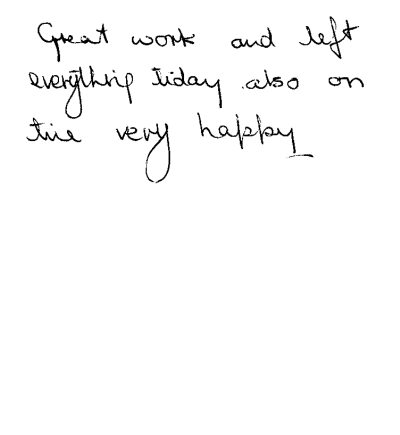 Great work and left
everything tiday also on
time very happy